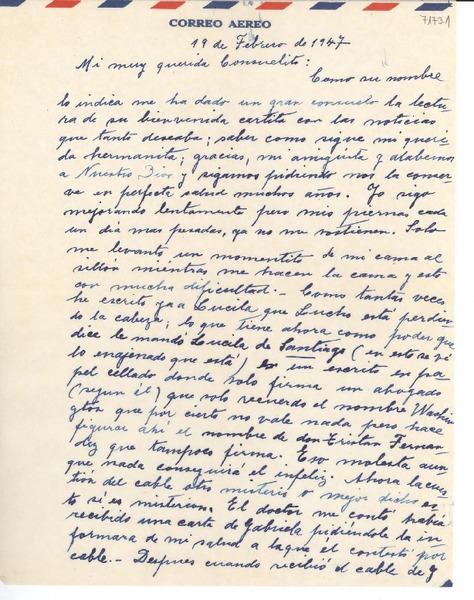 CORREO AEREO
71731
19 de Febrero de 1947
Mi muy querida Consuelito:
Como su nombre
lo indica me ha dado un gran consuelo la lectu-
ra de su bienvenida cartita con las noticias
que tanto deseaba; saber como sigue mi queri-
da hermanita; gracias, mi amiguita y alabemos
a Nuestro Dios y sigamos pidiendo nos la conser-
ve en perfecta salud muchos años. Yo sigo
mejorando lentamente pero mis piernas cada
un dia mas pesadas, ya no me sostienen. Solo
me levanto un momentito de mi cama al
sillón mientras me hacen la cama y esto
con mucha dificultad.- Como tantas veces
he escrito ya a Lucila que Lucho está perdien-
do la cabeza; lo que tiene ahora como poder que
dice le mandó Lucila de Santiago (en esto se vé
lo enajenado que está) es un escrito en pa-
pel cellado donde solo firma un abogado
(segun él) que solo recuerdo el nombre Washin-
gton que por cierto no vale nada pero hace
figurar ahí el nombre de don Tristan Fernan-
dez que tampoco firma. Eso molesta aun-
que nada conseguirá el infeliz. Ahora la cues-
tión del cable otro misterio o mejor dicho es-
to si es misterium. El doctor me contó había
recibido una carta de Gabriela pidiéndole la in-
formara de mi salud a la que él contestó por
cable.- Despues cuando recibió el cable de G